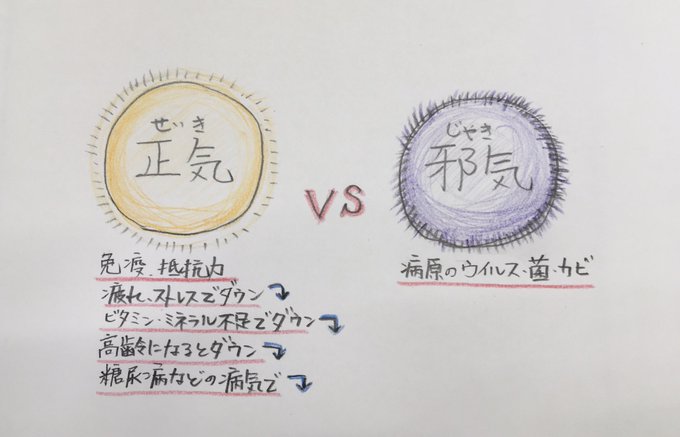 せいき
正気
VS
じゃき
邪気
免疫、抵抗力
疲れ、ストレスでダウン
ビタミン・ミネラル不足でダウン
高齢になるとダウン
糖尿病などの病気で
病原のウイルス・菌・カビ